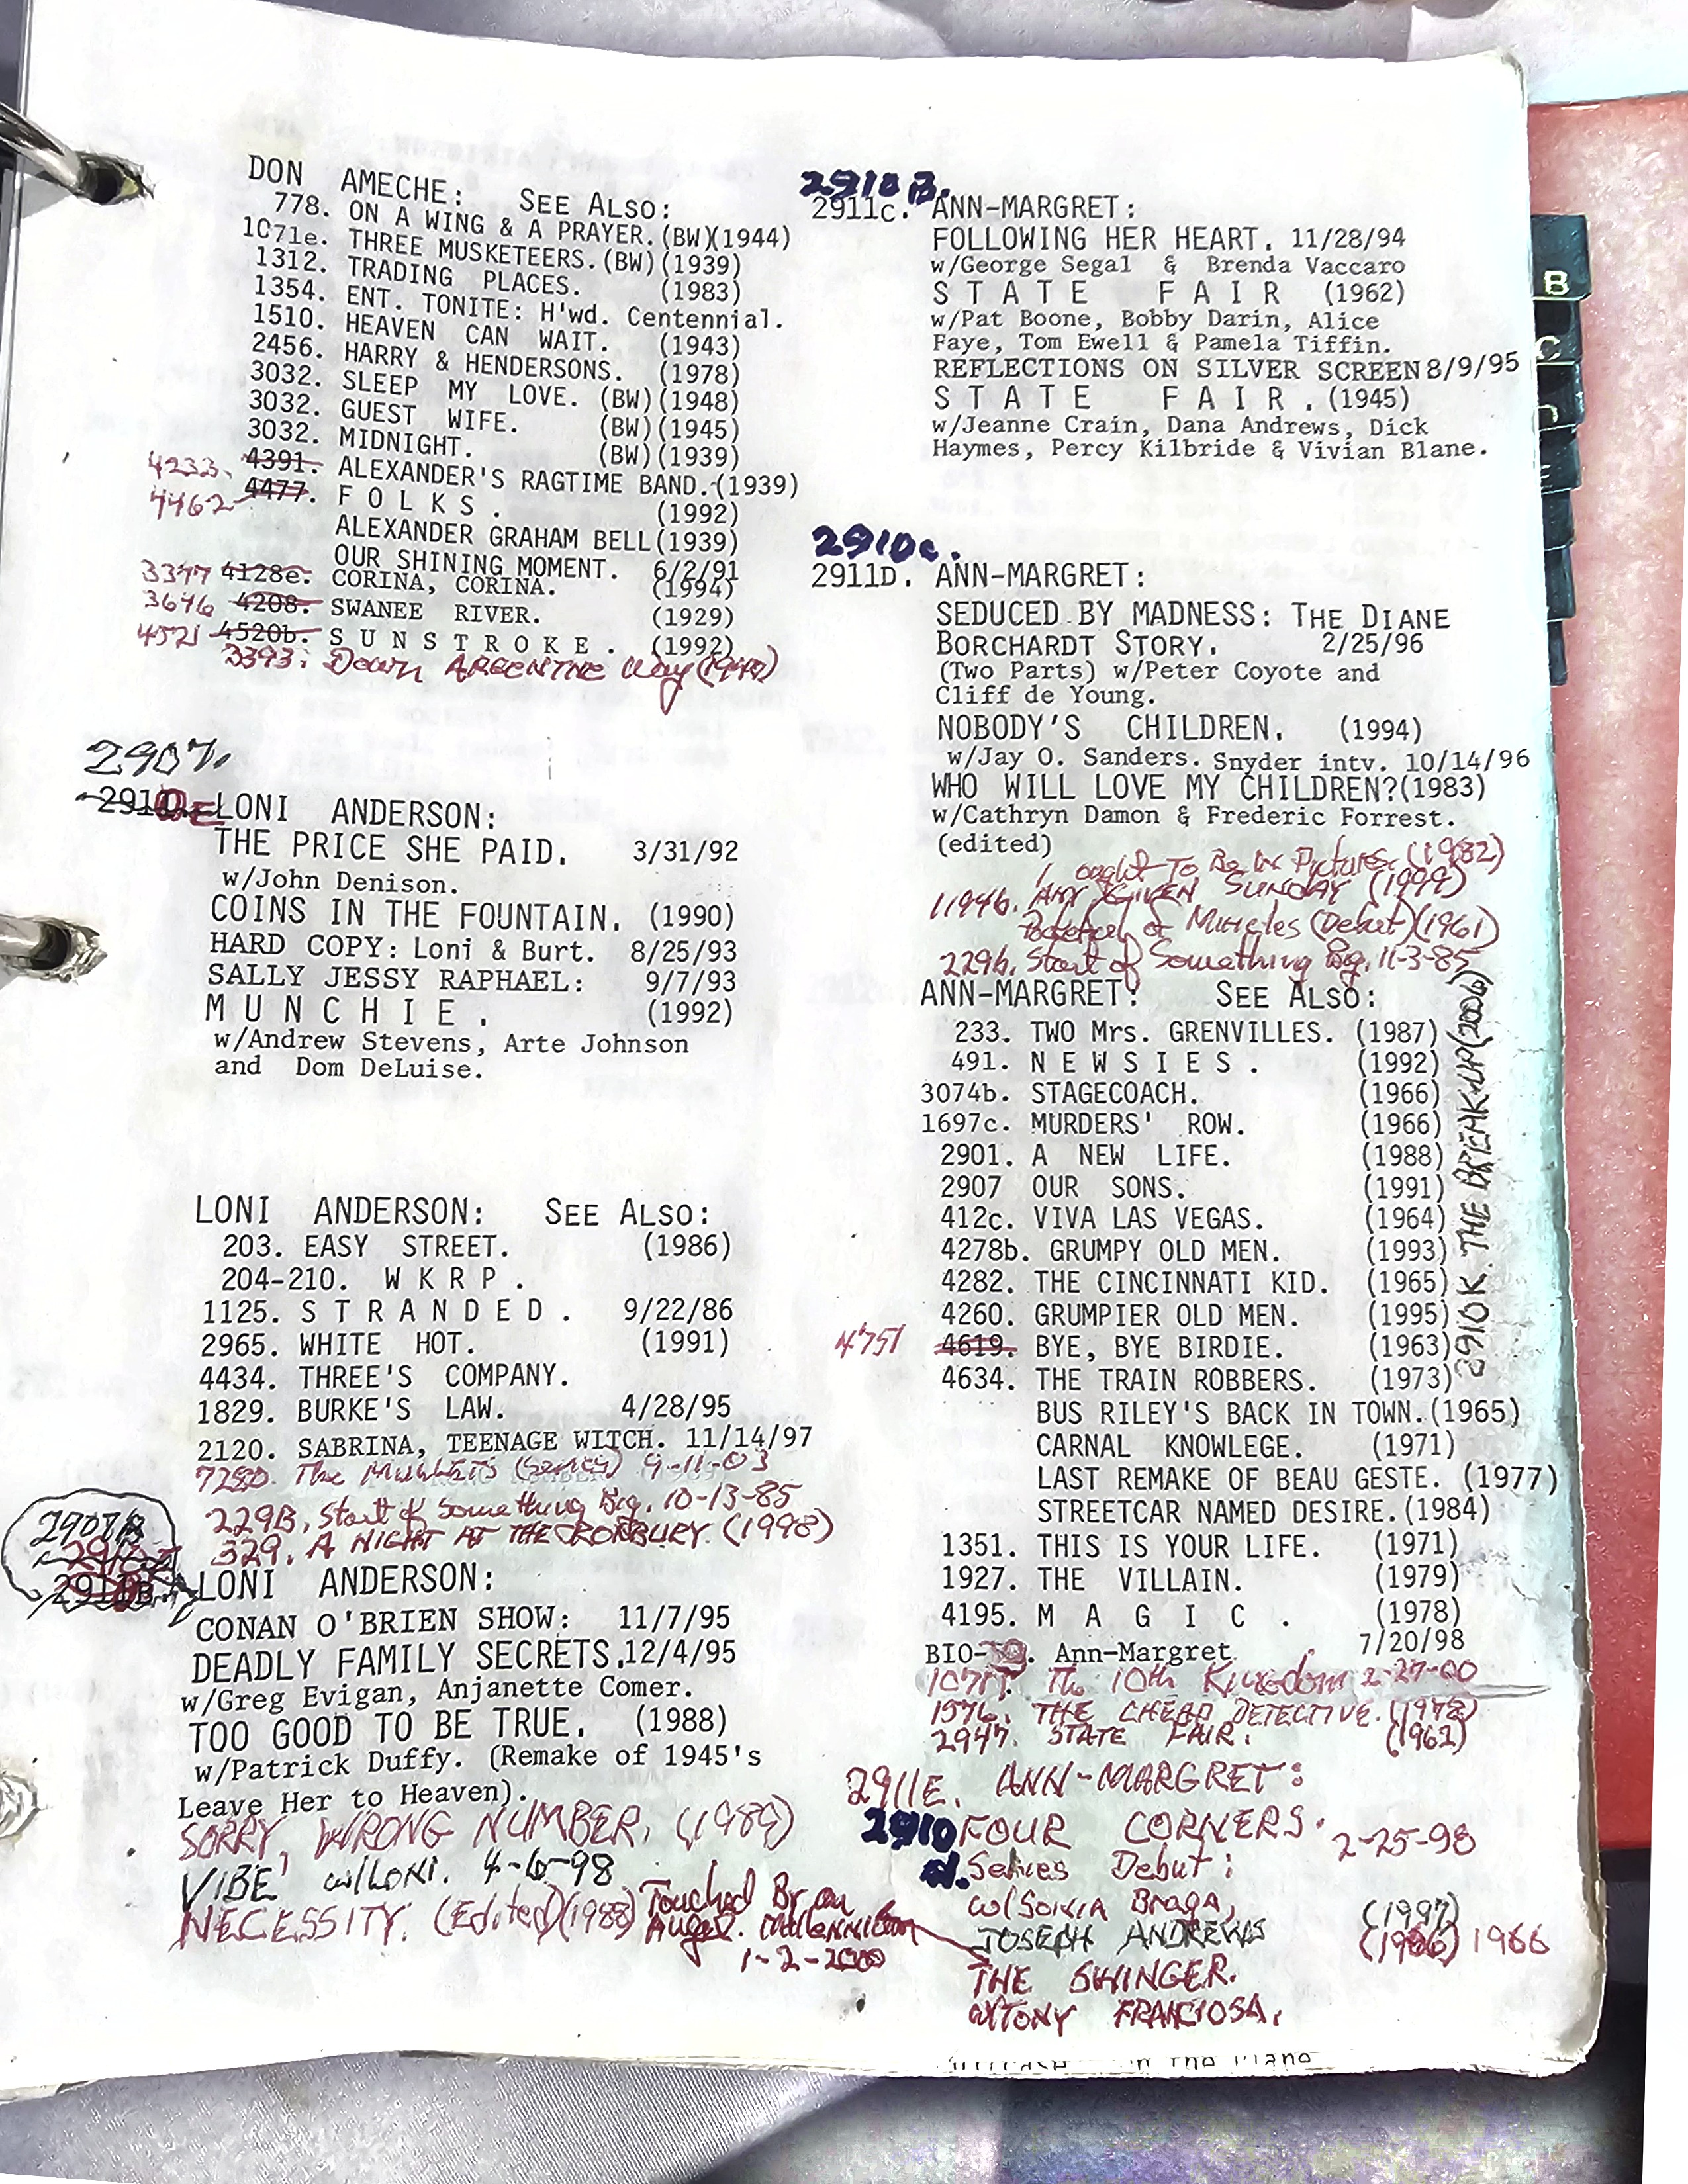 DON AMECHE: SEE ALSO:
778. ON A WING & A PRAYER.(BW)(1944)
1071e. THREE MUSKETEERS.(BW)(1939)
1312. TRADING PLACES. (1983)
1354. ENT. TONITE: H'wd. Centennial.
1510. HEAVEN CAN WAIT. (1943)
2456. HARRY & HENDERSONS. (1978)
3032. SLEEP MY LOVE. (BW)(1948)
3032. GUEST WIFE. (BW)(1945)
3032. MIDNIGHT. (BW)(1939)
4233. 4391. ALEXANDER'S RAGTIME BAND.(1939)
4462 4477. F O L K S . (1992)
ALEXANDER GRAHAM BELL(1939)
OUR SHINING MOMENT. 6/2/91
3377 4128e. CORINA, CORINA. (1994)
3646 4208. SWANEE RIVER. (1929)
4521 4520b. S U N S T R O K E . (1992)
3393. Down ARGENTINE Way (1940)
2907.
LONI ANDERSON:
THE PRICE SHE PAID. 3/31/92
w/John Denison.
COINS IN THE FOUNTAIN. (1990)
HARD COPY: Loni & Burt. 8/25/93
SALLY JESSY RAPHAEL: 9/7/93
M U N C H I E . (1992)
w/Andrew Stevens, Arte Johnson
and Dom DeLuise.
LONI ANDERSON: SEE ALSO:
203. EASY STREET. (1986)
204-210. W K R P .
1125. S T R A N D E D . 9/22/86
2965. WHITE HOT. (1991)
4434. THREE'S COMPANY.
1829. BURKE'S LAW. 4/28/95
2120. SABRINA, TEENAGE WITCH. 11/14/97
The MULLETS (series) 9-11-03
229B. Start of Something Big. 10-13-85
329. A NIGHT AT THE ROXBURY. (1998)
LONI ANDERSON:
CONAN O'BRIEN SHOW: 11/7/95
DEADLY FAMILY SECRETS.12/4/95
w/Greg Evigan, Anjanette Comer.
TOO GOOD TO BE TRUE. (1988)
w/Patrick Duffy. (Remake of 1945's
Leave Her to Heaven).
SORRY, WRONG NUMBER. (1989)
VIBE' w/LONI. 4-6-98
NECESSITY. (Edited)(1988)
Touched By an
Angel. Millennium
1-2-2000
2910B.
2911C. ANN-MARGRET:
FOLLOWING HER HEART. 11/28/94
w/George Segal & Brenda Vaccaro
S T A T E F A I R (1962)
w/Pat Boone, Bobby Darin, Alice
Faye, Tom Ewell & Pamela Tiffin.
REFLECTIONS ON SILVER SCREEN 8/9/95
S T A T E F A I R . (1945)
w/Jeanne Crain, Dana Andrews, Dick
Haymes, Percy Kilbride & Vivian Blane.
2910c.
2911D. ANN-MARGRET:
SEDUCED BY MADNESS: THE DIANE
BORCHARDT STORY. 2/25/96
(Two Parts) w/Peter Coyote and
Cliff de Young.
NOBODY'S CHILDREN. (1994)
w/Jay O. Sanders. Snyder intv. 10/14/96
WHO WILL LOVE MY CHILDREN?(1983)
w/Cathryn Damon & Frederic Forrest.
(edited)
I ought To Be In Pictures. (1982)
1194b. ANY GIVEN SUNDAY (1999)
Pocketful of Miracles (Debut)(1961)
229b. Start of Something Big. 11-3-85
ANN-MARGRET: SEE ALSO:
233. TWO Mrs. GRENVILLES. (1987)
491. N E W S I E S . (1992)
3074b. STAGECOACH. (1966)
1697c. MURDERS' ROW. (1966)
2901. A NEW LIFE. (1988)
2907 OUR SONS. (1991)
412c. VIVA LAS VEGAS. (1964)
4278b. GRUMPY OLD MEN. (1993)
4282. THE CINCINNATI KID. (1965)
4260. GRUMPIER OLD MEN. (1995)
4751 4619. BYE, BYE BIRDIE. (1963)
4634. THE TRAIN ROBBERS. (1973)
BUS RILEY'S BACK IN TOWN.(1965)
CARNAL KNOWLEGE. (1971)
LAST REMAKE OF BEAU GESTE. (1977)
STREETCAR NAMED DESIRE.(1984)
1351. THIS IS YOUR LIFE. (1971)
1927. THE VILLAIN. (1979)
4195. M A G I C . (1978)
BIO- . Ann-Margret 7/20/98
The 10th Kingdom 2-27-00
1576. THE CHEAP DETECTIVE. (1978)
2947. STATE FAIR. (1962)
2910K. THE BREAK-UP (2006)
2911E. ANN-MARGRET:
2910 d. FOUR CORNERS. 2-25-98
Series Debut:
w/Sonia Braga,
JOSEPH ANDREWS (1997)
THE SWINGER. (1966) 1966
w/TONY FRANCIOSA.
B
C
D
E